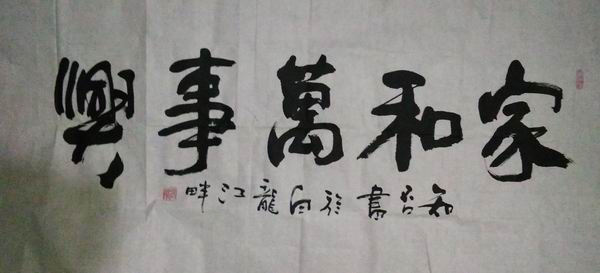 家和萬事興
知否書於白龍江畔